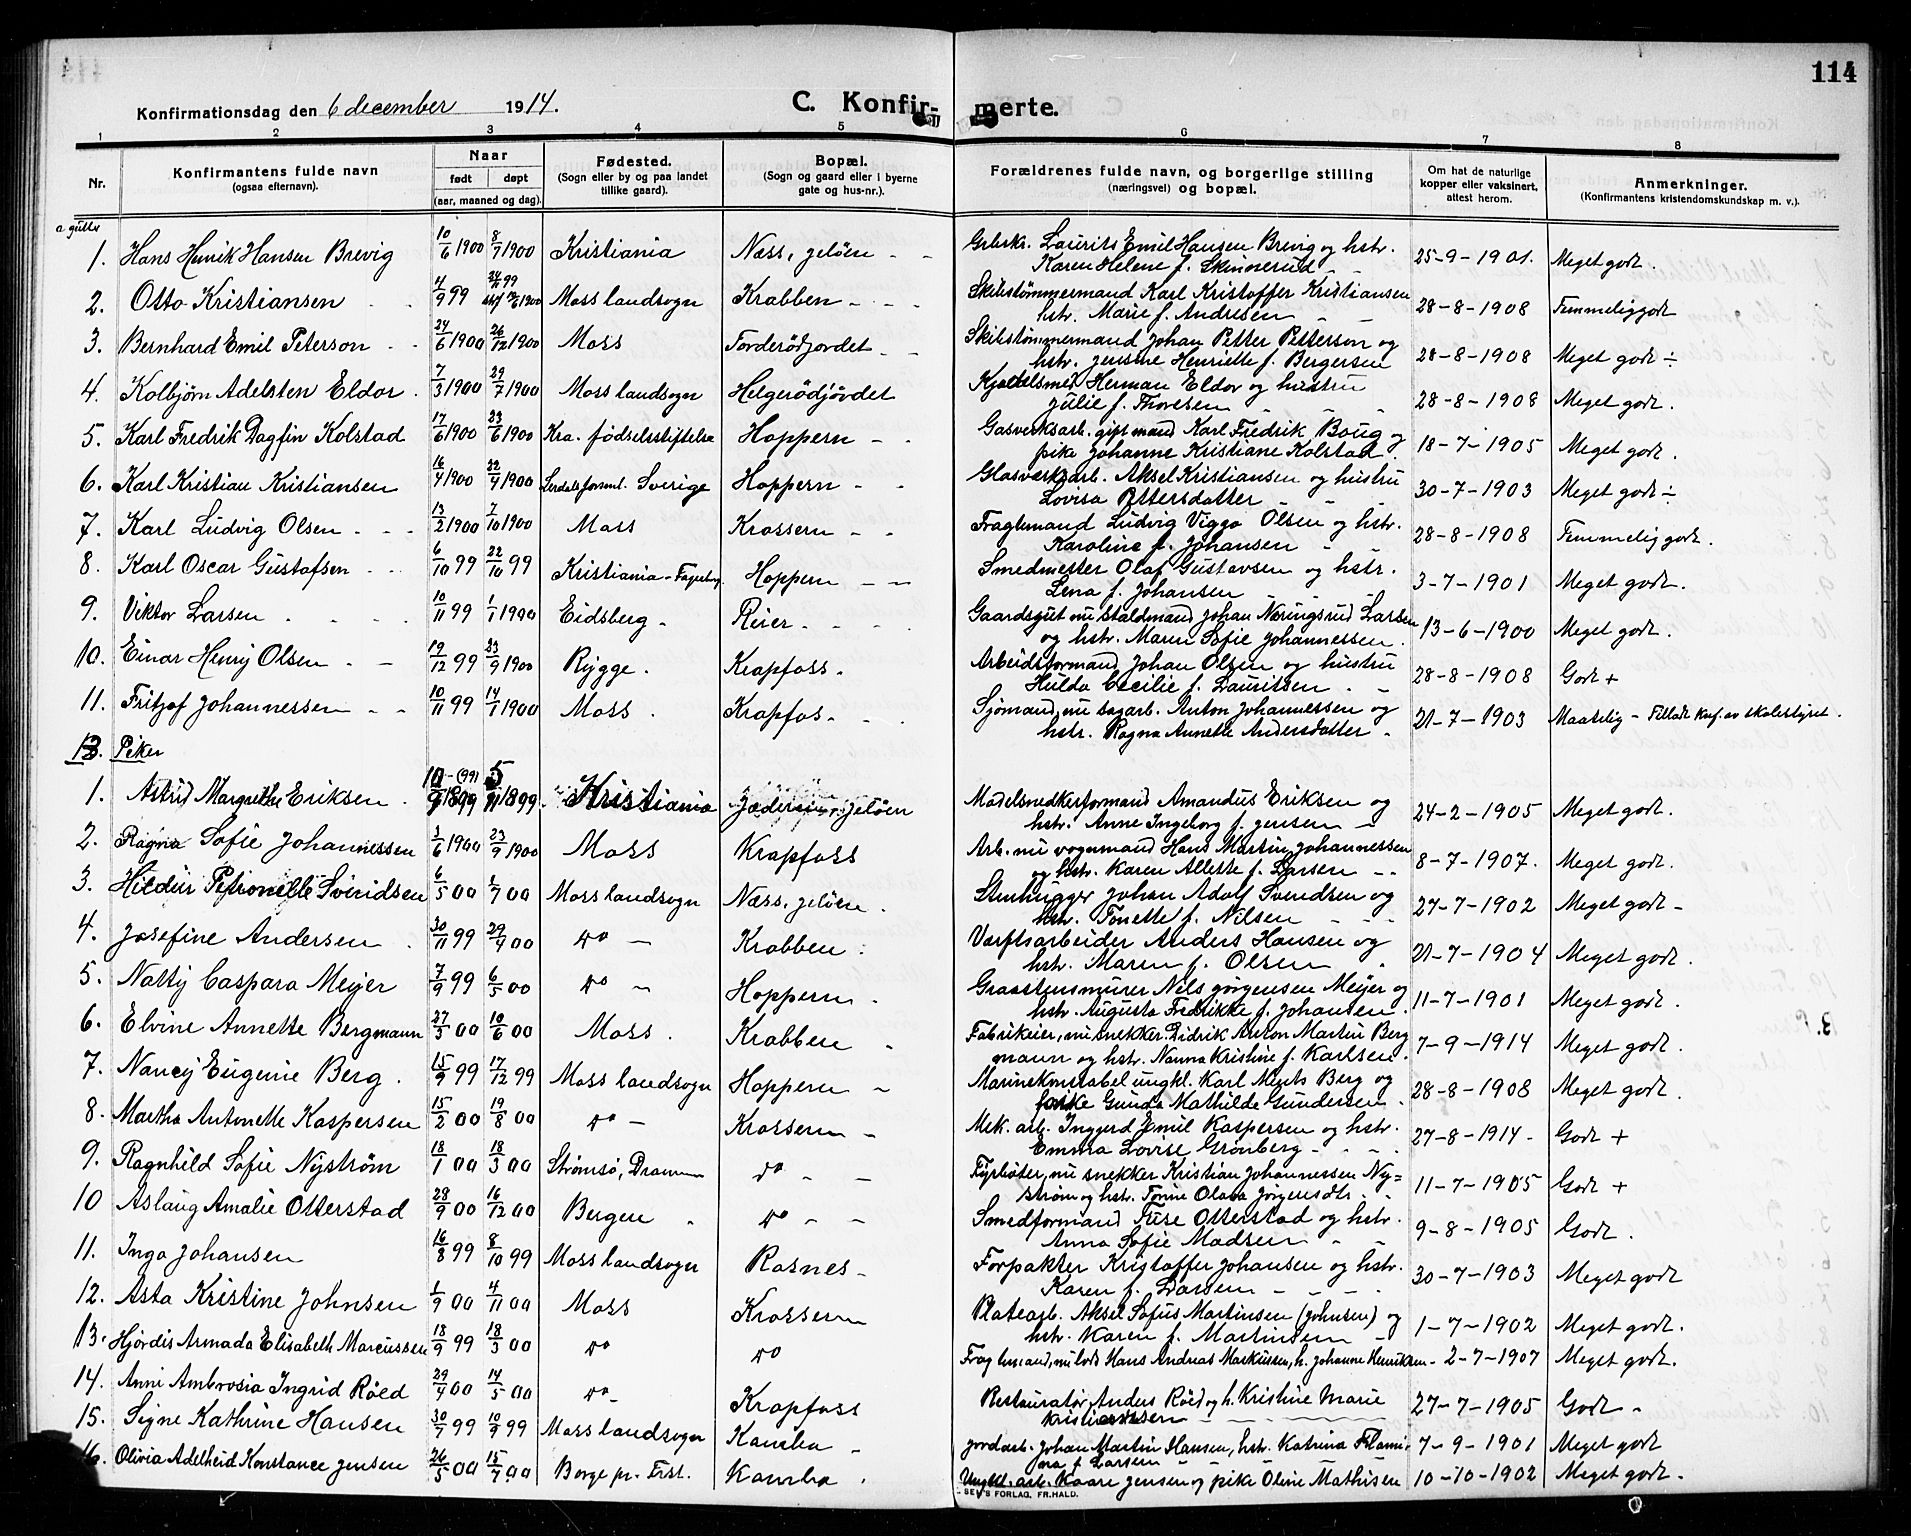 114
Konfirmationsdag den 6 december 1914.
C. Konfir- merte.
1 2 3 4 5 6 7 8
Nr.
Konfirmantens fulde navn
(ogsaa efternavn).
Naar
født døpt
(aar, maaned og dag).
Fødested.
(Sogn eller by og paa landet
tillike gaard).
Bopæl.
(Sogn og gaard eller i byerne
gate og hus-nr.).
Forældrenes fulde navn, og borgerlige stilling
(næringsvei) og bopæl.
Om hat de naturlige
kopper eller vaksinert,
attest herom.
Anmerkninger.
(Konfirmantens kristendomskundskap m. v.).
a gutter
1. Hans Henrik Hansen Brevig 10/6 1900 8/7 1900 Kristiania Næss, Jeløen - - Laurits Emil Hansen Brevig og hstr. 25-9-1901. Meget godt.
Karen Helene f. Skinnerud
2. Otto Kristiansen 4/9 99 Moss landsogn Krabben - - Skibstømmermand Karl Kristoffer Kristiansen 28-8-1908 Temmelig godt
hstr. Marie f. Andresen
3. Bernhard Emil Peterson 24/6 1900 26/12 1900 Moss Forderödjordet - - Skibstömmermand Johan Petter Petterson og 28-8-1908 Meget godt ÷
hstr. Jensine Henriette f. Bergersen
4. Kolbjørn Adelsten Eldor 7/3 1900 29/7 1900 Moss landsogn Helgerödjordet Kjedelsmed Herman Eldor og hustru 28-8-1908 Meget godt.
Julie f. Thoresen
5. Karl Fredrik Dagfin Kolstad 17/6 1900 23/6 1900 Kra. födselsstiftelse Hoppern - - Gasverksarb. gift mand Karl Fredrik Boug og 18-7-1905 Meget godt.
pike Johanne Kristiane Kolstad
6. Karl Kristian Kristiansen 16/4 1900 22/4 1900 Sverige Hoppern - - Glasværksarb. Aksel Kristiansen og hustru 30-7-1903 Meget godt ÷
Lovisa Pettersdatter
7. Karl Ludvig Olsen 13/2 1900 7/10 1900 Moss Krossern - - Fragtemand Ludvig Viggo Olsen og hstr. 28-8-1908 Temmelig godt.
Karoline f. Johansen
8. Karl Oscar Gustafsen 6/10 99 22/10 99 Kristiania - Fagerborg Hoppern - - Smedmester Olaf Gustavsen og hstr. 3-7-1901 Meget godt.
Lena f. Johansen
9. Viktor Larsen 10/11 99 1/1 1900 Eidsberg - Reier - Gaardsgut nu staldmand Johan Næringsrud Larsen 13-6-1900 Meget godt.
og hstr. Maren Sofie Johannessen
10. Einar Henry Olsen 19/12 99 23/9 1900 Rygge. Krapfoss. Arbeidsformand Johan Olsen og hustru 28-8-1908 Godt +
Hulda Cecilie f. Lauritsen
11. Fritjof Johannessen 10/11 99 14/1 1900 Moss. Krapfos. Sjömand, nu sagarb. Anton Johannessen og 21-7-1903 Maatelig - Tillatt av skolestyret.
hstr. Ragna Annette Andersdatter
B. Piker
1. Astrid Margrethe Eriksen 1899 1899 Kristiania Jeløen Modelsnedkerformand Amandus Eriksen og 24-2-1905 Meget godt.
hstr. Anne Ingeborg f. Jensen
2. Ragna Sofie Johannessen 3/6 1900 23/9 1900 Moss Krapfoss Arb. nu vognmand Hans Martin Johannessen 8-7-1907. Meget godt.
og hstr. Karen Allette f. Larsen
3. Hildur Petronelle Svendsen 6/5 00 1/7 00 Moss landsogn Næss, Jeløen. Stenhugger Johan Adolf Svendsen og 27-7-1902 Meget godt -
hstr. Tonette f. Nilsen
4. Josefine Andersen 30/11 99 29/4 00 do - Krabben Værftsarbeider Anders Hansen og 21-7-1904 Meget godt.
hstr. Maren f. Olsen
5. Natty Caspara Meyer 7/9 99 6/5 00 do - Hoppern. Graastensmurer Nils Jörgensen Meyer og 11-7-1901 Meget godt.
hstr. Augusta Fredrikke f. Johansen
6. Elvine Annette Bergmann 27/3 00 10/6 00 Moss. Krabben Fabrikeier, nu snekker Didrik Anton Martin Berg 7-9-1914 Meget godt.
mann og hstr. Nanna Kristine f. Karlsen
7. Nancy Eugenie Berg. 15/9 99 17/12 99 Moss landsogn Hoppern - Marinekonstabel ungkl. Karl Berg og 28-8-1908 Meget godt.
pike Gunda Mathilde Gundersen
8. Martha Antonette Kaspersen 15/2 00 19/8 00 do - Krossern - Mek. arb. Inggerd Emil Kaspersen og hstr. 27-8-1914 - Godt +
Emma Lovise Grönberg
9. Ragnhild Sofie Nyström 18/1 00 18/3 00 Strømsö, Drammen do - - Fyrböter, nu snekker Kristian Johannessen Ny= 11-7-1905 Godt +
ström og hstr. Tonine Olava Jörgensdtr.
10 Aslaug Amalie Otterstad 28/9 00 16/12 00 Bergen do - - Smedformand Otterstad og hstr. 9-8-1905 Godt.
Anna Sofie Madsen
11. Inga Johansen 16/8 99 8/10 99 Moss landsogn Rosnes - Forpakter Kristoffer Johansen og hstr. 30-7-1903 Meget godt
Karen f. Larsen
12. Asta Kristine Johnsen 1/9 00 4/11 00 Moss Krossern Platearb. Aksel Sofus Martinsen (Johnsen) og 1-7-1902 Meget godt.
hstr. Karen f. Martinsen
13. Hjördis Armada Elisabeth Marcussen 18/9 99 18/3 00 do do Fragtemand, nu lods Hans Andreas Markussen, h. Johanne Henriksen - 2-7-1907 Meget godt.
14. Anni Ambrosia Ingrid Röed 29/4 00 14/5 00 do - Krapfoss Restauratør Anders Röed og h. Kristine Marie 27-7-1905 Godt -
Kristiansen
15. Signe Kathrine Hansen 30/7 99 10/9 99 Moss landsogn Kambo - Jordarb. Johan Martin Hansen, hstr. Katrina 7-9-1901 Meget godt
f Larsen
16. Olivia Adelheid Konstance Jensen 26/5 00 15/7 00 Borge pr. Frst. Kambo. Ungkl. arb. Kaare Jensen og pike Oline Mathisen 10-10-1902 Meget godt -
SEM'S FORLAG, FR.HALD.